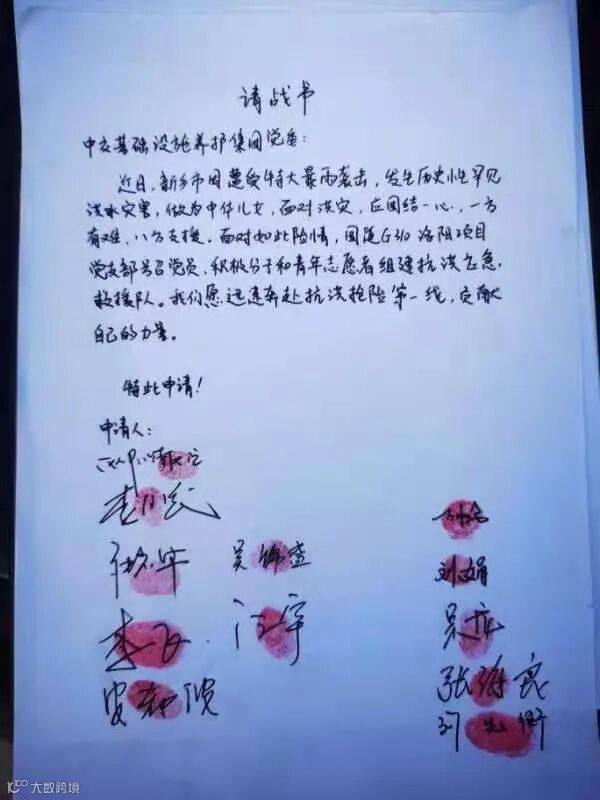 请战书
中交基础设施养护集团党委:
近日,新乡市因遭受特大暴雨袭击,发生历史性罕见
洪水灾害,做为中华儿女,面对洪灾,应团结一心,一方
有难,八方支援。面对如此险情,国道G310洛阳项目
党支部号召党员,积极分子和青年志愿者组建抗洪应急
救援队。我们愿迅速奔赴抗洪抢险第一线,贡献
自己的力量。
特此申请!
申请人:
刘文娟
李飞 汪宇 吴
张海良
大数跨境